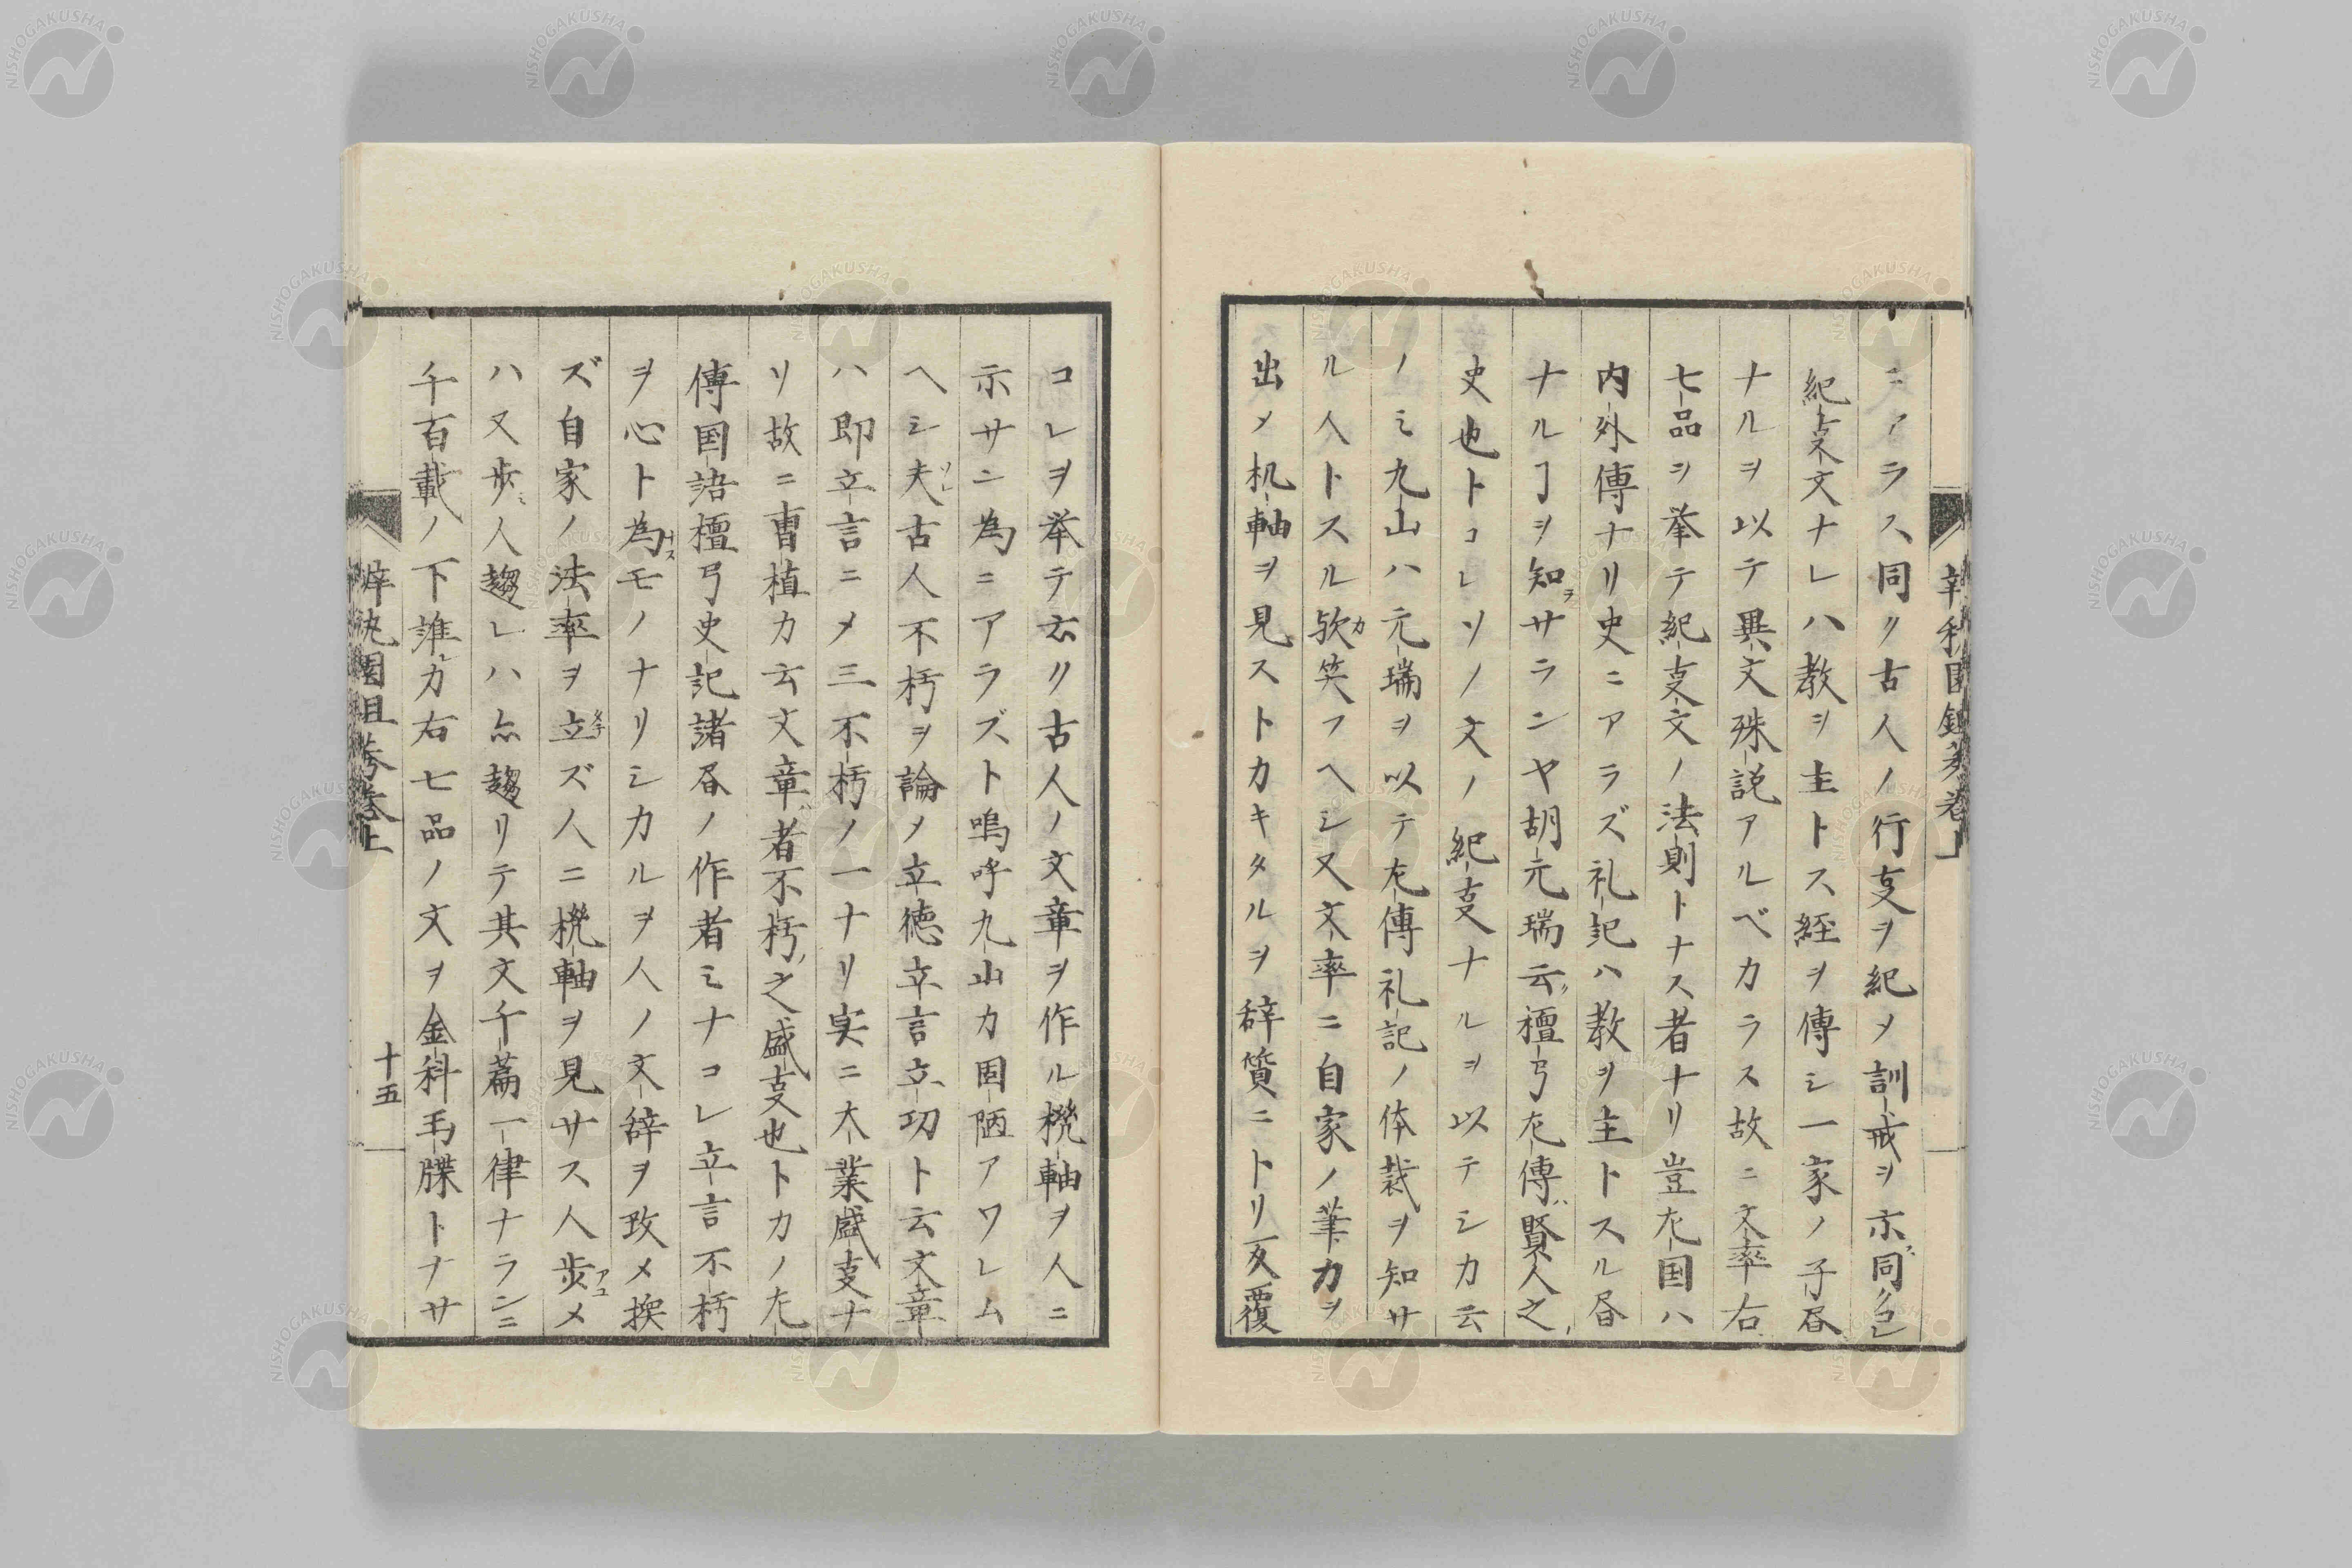 ニアラス同ク古人ノ行㕝ヲ紀メ訓戒ヲ示同クコレ
紀㕝文ナレハ教ヲ主トス経ヲ傳シ一家ノ子昏
ナルヲ以テ異文殊説アルベカラス故ニ文率右
七品ヲ挙テ紀㕝文ノ法則トナス者ナリ豈左国ハ
内外傳ナリ史ニアラズ礼記ハ教ヲ主トスル昏
ナルヿヲ知ラサランヤ胡元瑞云檀弓左傳賢人之
史也トコレソノ文ノ紀㕝ナルヲ以テシカ云
ノミ九山ハ元瑞ヲ以テ左傳礼記ノ体裁ヲ知サ
ル人トスル欤笑フヘシ又文率ニ自家ノ筆力ヲ
出メ机軸ヲ見ストカキタルヲ辞質ニトリ反覆
コレヲ挙テ云リ古人ノ文章ヲ作ル機軸ヲ人ニ
示サニ為ニアラズト嗚呼九山カ固陋アワレム
ヘシ夫古人不朽ヲ論メ立徳立言立功ト云文章
ハ即立言ニメ三不朽ノ一ナリ実ニ大業盛㕝ナ
リ故ニ曹植カ云文章者不朽之盛㕝也トカノ左
傳国語檀弓史記諸昏ノ作者ミナコレ立言不朽
ヲ心ト為モノナリシカルヲ人ノ文辞ヲ攻メ揆
ズ自家ノ法率ヲ立ズ人ニ機軸ヲ見サス人歩メ
ハ又歩人趨レハ亦趨リテ其文千篇一律ナランニ
千百載ノ下誰カ右七品ノ文ヲ金科玉牒トナサ
十五
NISHOGAKUSHA